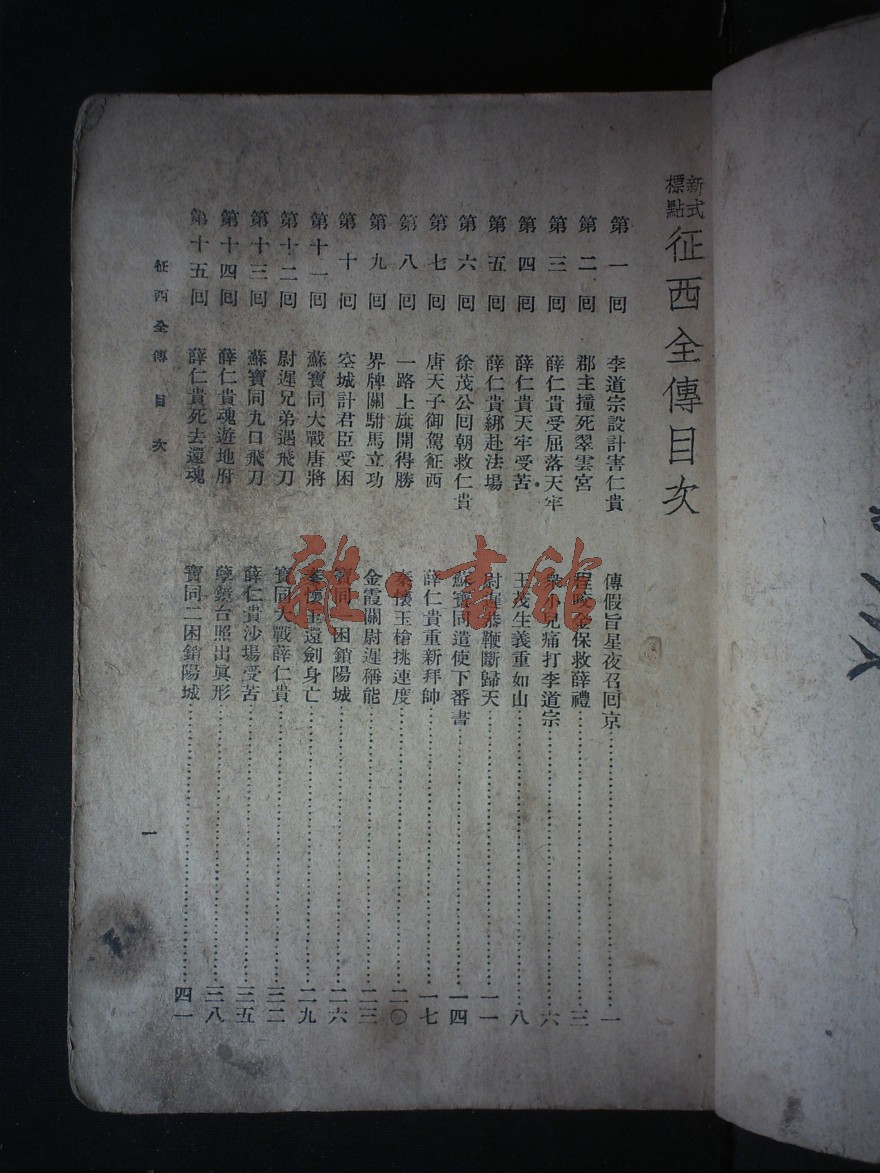 新式標點 征西全傳目次
第一回 李道宗設計害仁貴 傳假旨星夜召回京 一
第二回 郡主撞死翠雲宮 程咬金保救薛禮 三
第三回 薛仁貴受屈落天牢 衆小兒痛打李道宗 六
第四回 薛仁貴天牢受苦 王茂生義重如山 八
第五回 薛仁貴綁赴法場 尉遲恭鞭斷歸天 一一
第六回 徐茂公回朝救仁貴 蘇寶同遣使下番書 一四
第七回 唐天子御駕征西 薛仁貴重新拜帥 一七
第八回 一路上旗開得勝 秦懷玉槍挑連度 二〇
第九回 界牌關駙馬立功 金霞關尉遲稱能 二三
第十回 空城計君臣受困 寶同一困鎖陽城 二六
第十一回 蘇寶同大戰唐將 秦懷玉還劍身亡 二九
第十二回 尉遲兄弟遇飛刀 寶同大戰薛仁貴 三二
第十三回 蘇寶同九口飛刀 薛仁貴沙場受苦 三五
第十四回 薛仁貴魂遊地府 孽鏡台照出眞形 三八
第十五回 薛仁貴死去還魂 寶同二困鎖陽城 四一
征西全傳 目次
一
雜·書館